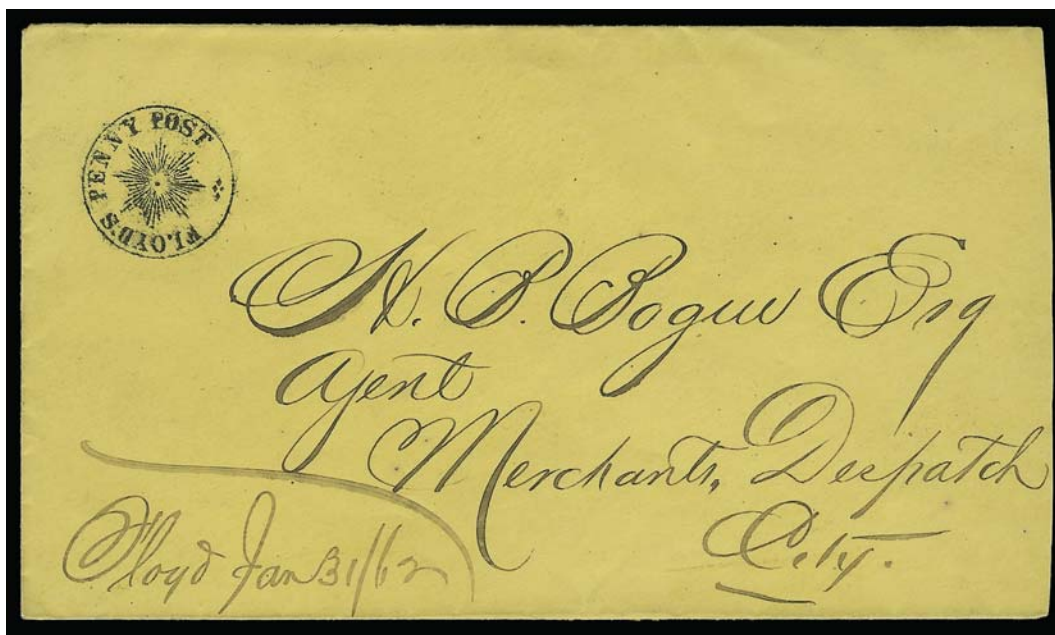 FLOYD'S PENNY POST
H. B. Bogue Esq
Agent
Merchants, Despatch
City.
Floyd Jan 31/62